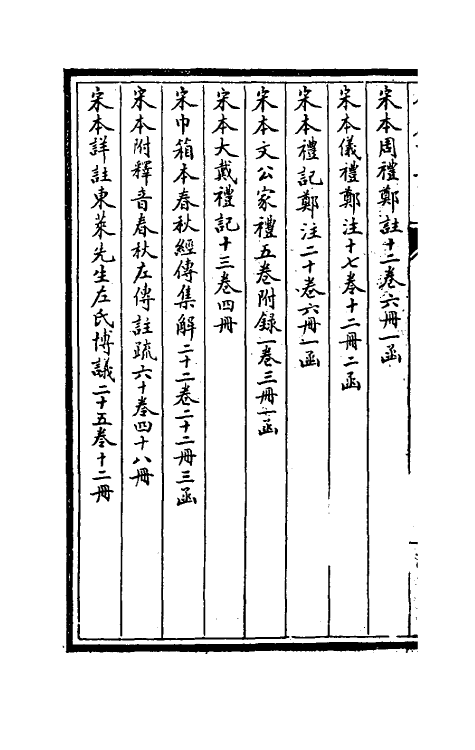 宋本周禮鄭註十二卷六冊一函
宋本儀禮鄭注十七卷十二冊二函
宋本禮記鄭注二十卷六冊一函
宋本文公家禮五卷附録一卷三冊一函
宋本大戴禮記十三卷四冊
宋巾箱本春秋經傳集解二十二卷二十二冊三函
宋本附釋音春秋左傳註疏六十卷四十八冊
宋本詳註東萊先生左氏博議二十五卷十二冊